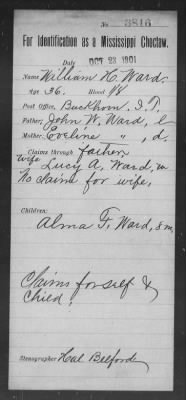 No. 3816
For Identification as a Mississippi Choctaw.
Date OCT 23 1901
Name William H. Ward.
Age 36. Blood W
Post Office, Buckhorn, I.T.
Father; John W. Ward, l
Mother; Eveline " , d.
Claims through father,
Wife Lucy A. Ward, w
No claims for wife,
Children:
Alma F. Ward, 8 m.
Claims for self &
Child.
Stenographer Hal Belford